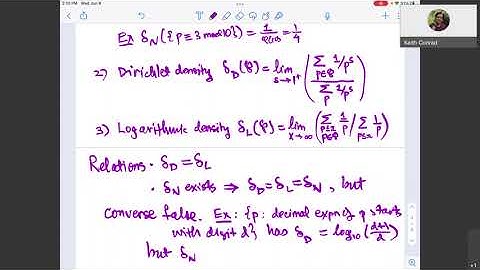 2:10 PM Wed Jun 8
Ex δ_N({p ≡ 3 mod 10}) = 1/φ(10) = 1/4
Keith Conrad
2) Dirichlet density δ_D(P) = lim_{s→1⁺} (∑_{p∈P} 1/p^s / ∑_p 1/p^s)
3) Logarithmic density δ_L(P) = lim_{x→∞} (∑_{p≤x, p∈P} 1/p / ∑_{p≤x} 1/p)
Relations · δ_D = δ_L
· δ_N exists ⇒ δ_D = δ_L = δ_N, but
converse false. Ex: {p: decimal expn of p starts
with digit d} has δ_D = log₁₀((d+1)/d)
but δ_N